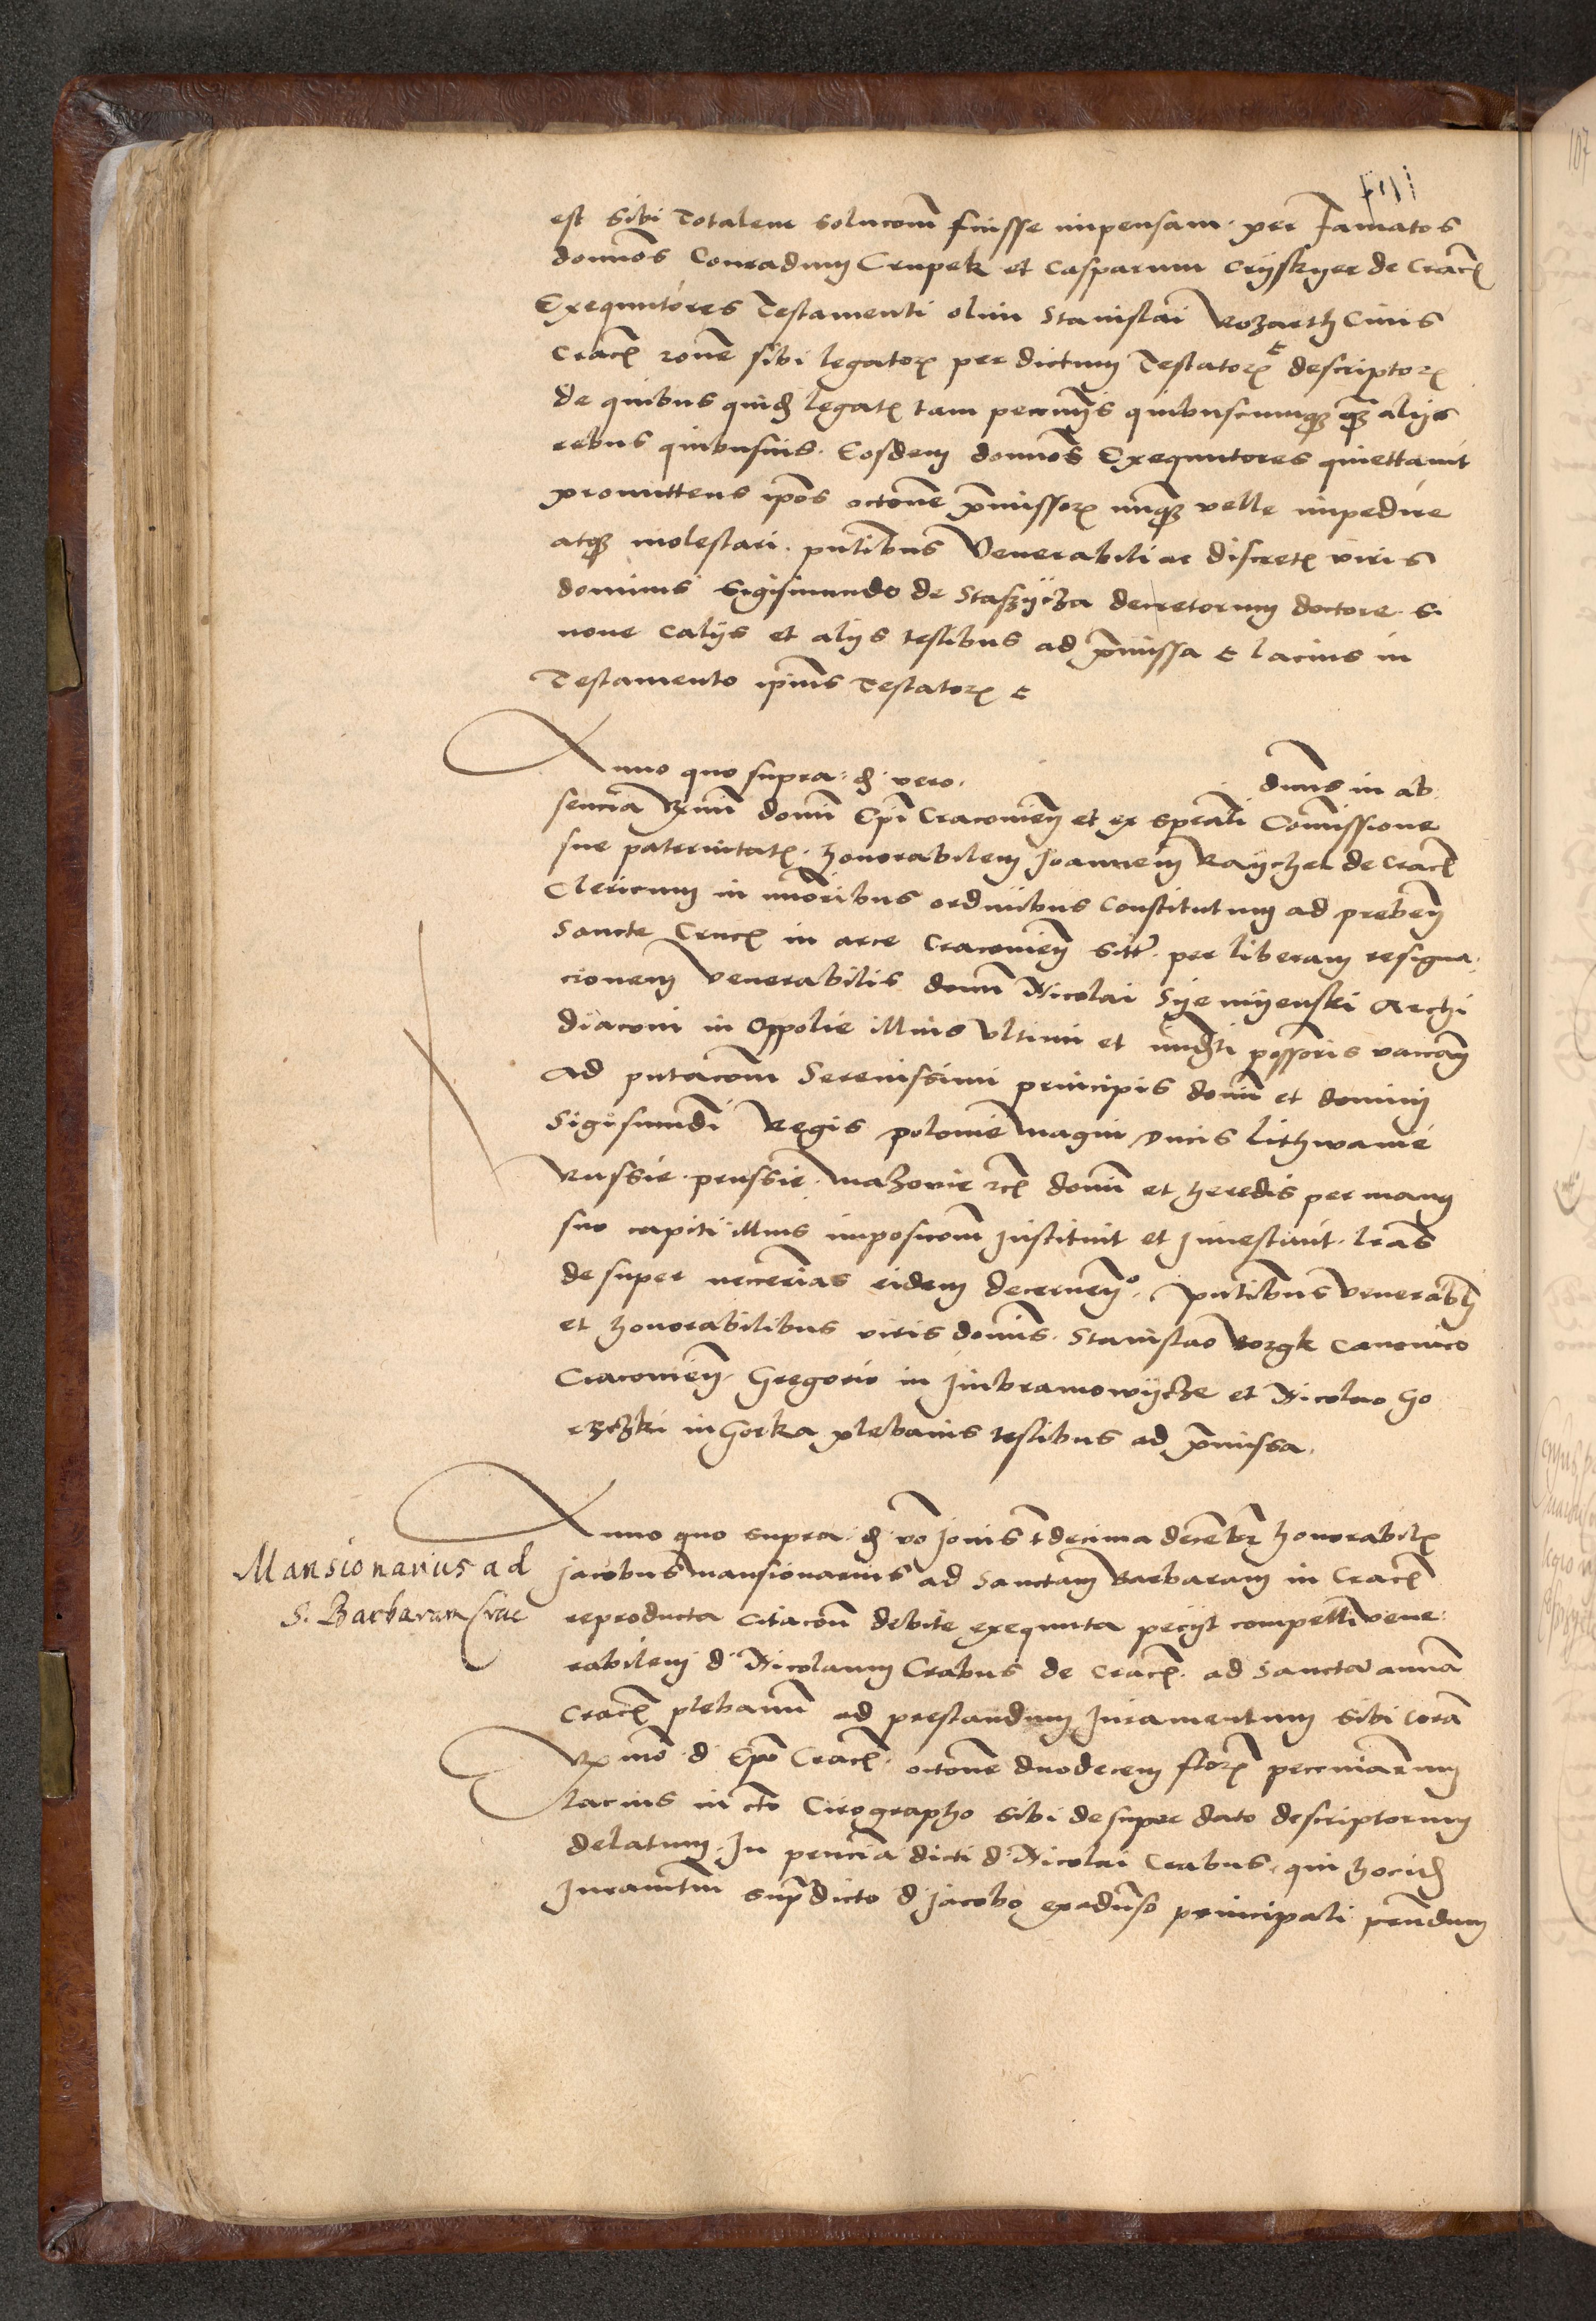 est sibi Totalem solucom̄ fuisse impensam per Famatos
domnos Conradum Crupek et Casparum de Crac̄
Exequutores Testamenti olim Stanislai Rozarth Civis
Crac̄ rone sibi legator̄ per dictum Testator̄ descriptor̄
de quibus quid legat̄ tam pecunijs quibuscumq̄ q̄ alijs
rebus quibusuis. Eosdem domnos Exequutores quiettauit
promittens ip̄os octone p̄missor̄ nunq̄ velle impedire
atq̄ molestari. pn̄tibus Venerabili ac discret̄ viris
dominis Sigismundo de Staszycza decretorum doctore. Si
mone Calijs et alijs testibus ad p̄missa & lacius in
Testamento ip̄ius Testator̄ &
Anno quo supra. d. vero. dnus in ab
sencia R̄mi domi Ep̄i Cracovien̄ et ex sp̄eali Comissione
sue paternitat̄. honorabilem Joannem Raychel de Crac̄
Clericum in mi̅oribus ordinibus Constitutum ad preben̄
Sancte Cruc̄ in arce Cracovien̄ sitt̄. per liberam resigna
cionem Venerabilis domi Nicolai Syemyenski Archi
diaconi in Oppolie illius Ultimi et imediti possoris vacan̄
Ad pn̄tacom̄ Serenissimi principis domi et domini
Sigismundi Regis polonie magni Ducis Lithwanie
Russie. prussie. Mazovie rc̄ domi et heredis per manus
suo capiti illius imposicom̄ Instituit et Investiuit. Lr̄as
de super necc̄rias eidem decernen̄o. pn̄tibus Venerabl̄
et honorabilibus viris domi̅s. Stanislao Borgk Canonico
Cracovien̄. Gregorio in Imbramowycze et Nicolao Go
rzczki in Gorka plebanis testibus ad p̄missa.
Anno quo supra. d. vo Jouis decima decēbr̄ honorabil̄
Jacobus Mansionarius ad Sanctam Barbaram in Crac̄
reproducta Citacom̄ debite exequuta pecijt compelli vene
rabilem d. Nicolaum Crabus de Crac̄. ad Sanctā annā
Crac̄ plebanū ad prestandum Juramentum sibi corā
R̄mo d. Ep̄o Crac̄. octone duodecem flor̄ pecuniarum
lacius in cto Cirographo sibi de super dato descriptorum
delatum. In pn̄cia dicti d. Nicolai Crabus. qui
Juramtm̄ sup̄dicto d. Jacobo principali
Mansionarius ad
S. Barbaram Crac